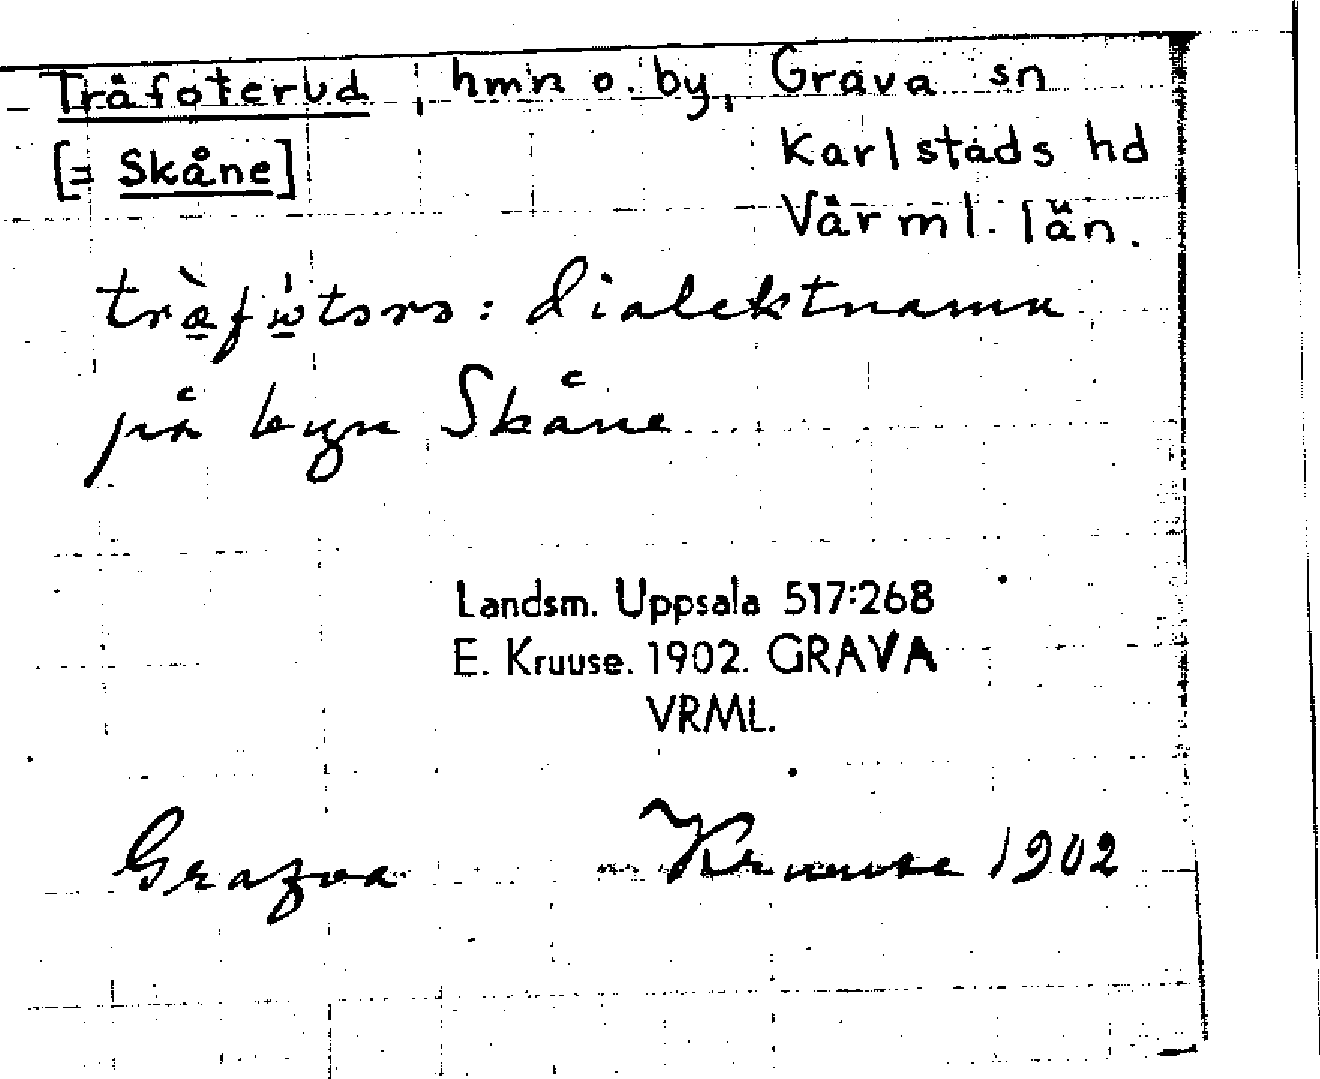 Träfoterud, hmn o. by, Grava sn
[= Skåne] Karlstads hd
Värml. län.
: dialektnamn
på byn Skåne
Landsm. Uppsala 517:268
E. Kruuse. 1902. GRAVA
VRML.
Grafva Kruuse 1902